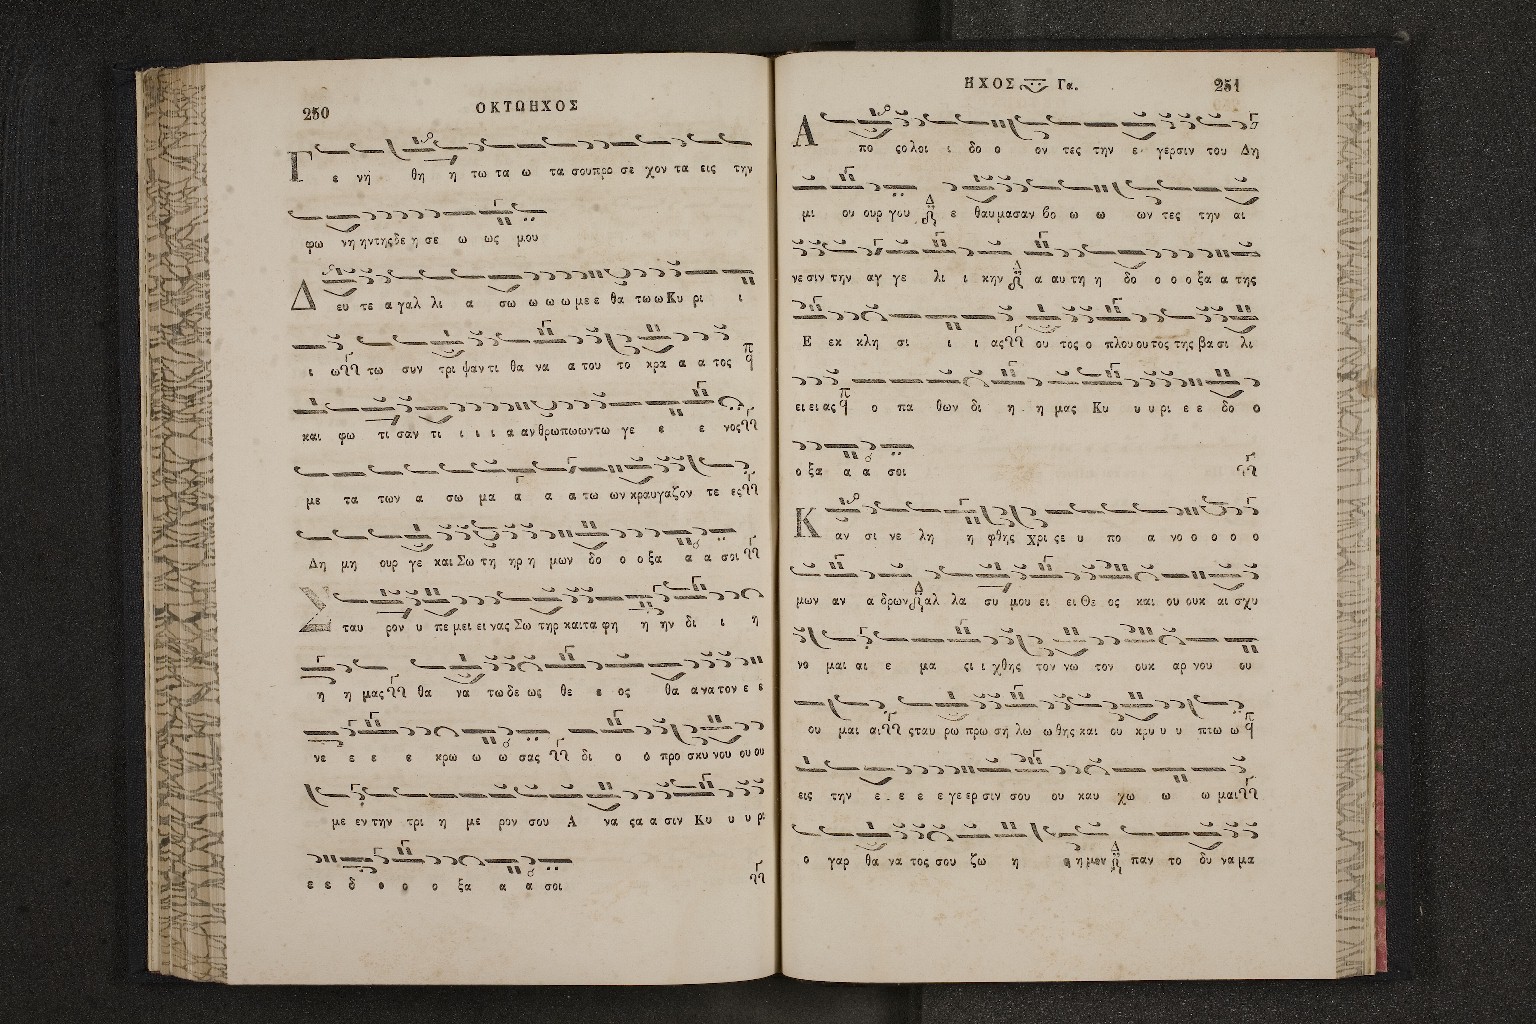 250 ΟΚΤΩΗΧΟΣ
Γ ε νή θη η τω τα ω τα σου προ σε χον τα εις την
φω νη ην της δε η σε ω ως μου
Δ ευ τε α γαλ λι α σω ω ω ω με ε θα τω ω Κυ ρι ι
ι ω τω συν τρι ψαν τι θα να α του το κρα α α τος
και φω τι σαν τι ι ι ι α αν θρωπω ων τω γε ε ε νος
με τα των α σω μα ά α α τω ων κραυγαζον τε ες
Δη μη ουρ γε και Σω τη ηρ η μων δο ο ο ξα α α σοι
Σ ταυ ρον υ πε μει ει νας Σω τηρ και τα φη η ην δι ι η
η η μας θα να τω δε ως θε ε ος θα ανατον ε ε
νε ε ε ε κρω ω ω σας δι ο ο προ σκυ νου ου ου
με εν την τρι η με ρον σου Α να ςα α σιν Κυ υ υ ρι
ε ε δ ο ο ο ξα α α σοι
ΗΧΟΣ Γα. 251
Α πο ςο λοι ι δο ο ον τες την ε γερσιν του Δη
μι ου ουρ γου ε θαυ μασαν βο ω ω ων τες την αι
νε σιν την αγ γε λι ι κην α αυ τη η δο ο ο ο ξα α της
Ε εκ κλη σι ι ι ας ου τος ο πλου ου τος της βα σι λι
ει ει ας ο πα θων δι η η μας Κυ υ υ ρι ε ε δο ο
ο ξα α α σοι
Κ αν σι νε λη η φθης Χρι ςε υ πο α νο ο ο ο ο
μων αν α δρων αλ λα συ μου ει ει Θε ος και ου ουκ αι σχυ
νο μαι αι ε μα ςι ι χθης τον νω τον ουκ αρ νου ου
ου μαι αι ςταυ ρω πρω ση λω ω θης και ου κρυ υ υ πτω ω
εις την ε ε ε ε γε ερ σιν σου ου καυ χω ω ω μαι
ο γαρ θα να τος σου ζω η η η μου παν το δυ να μα